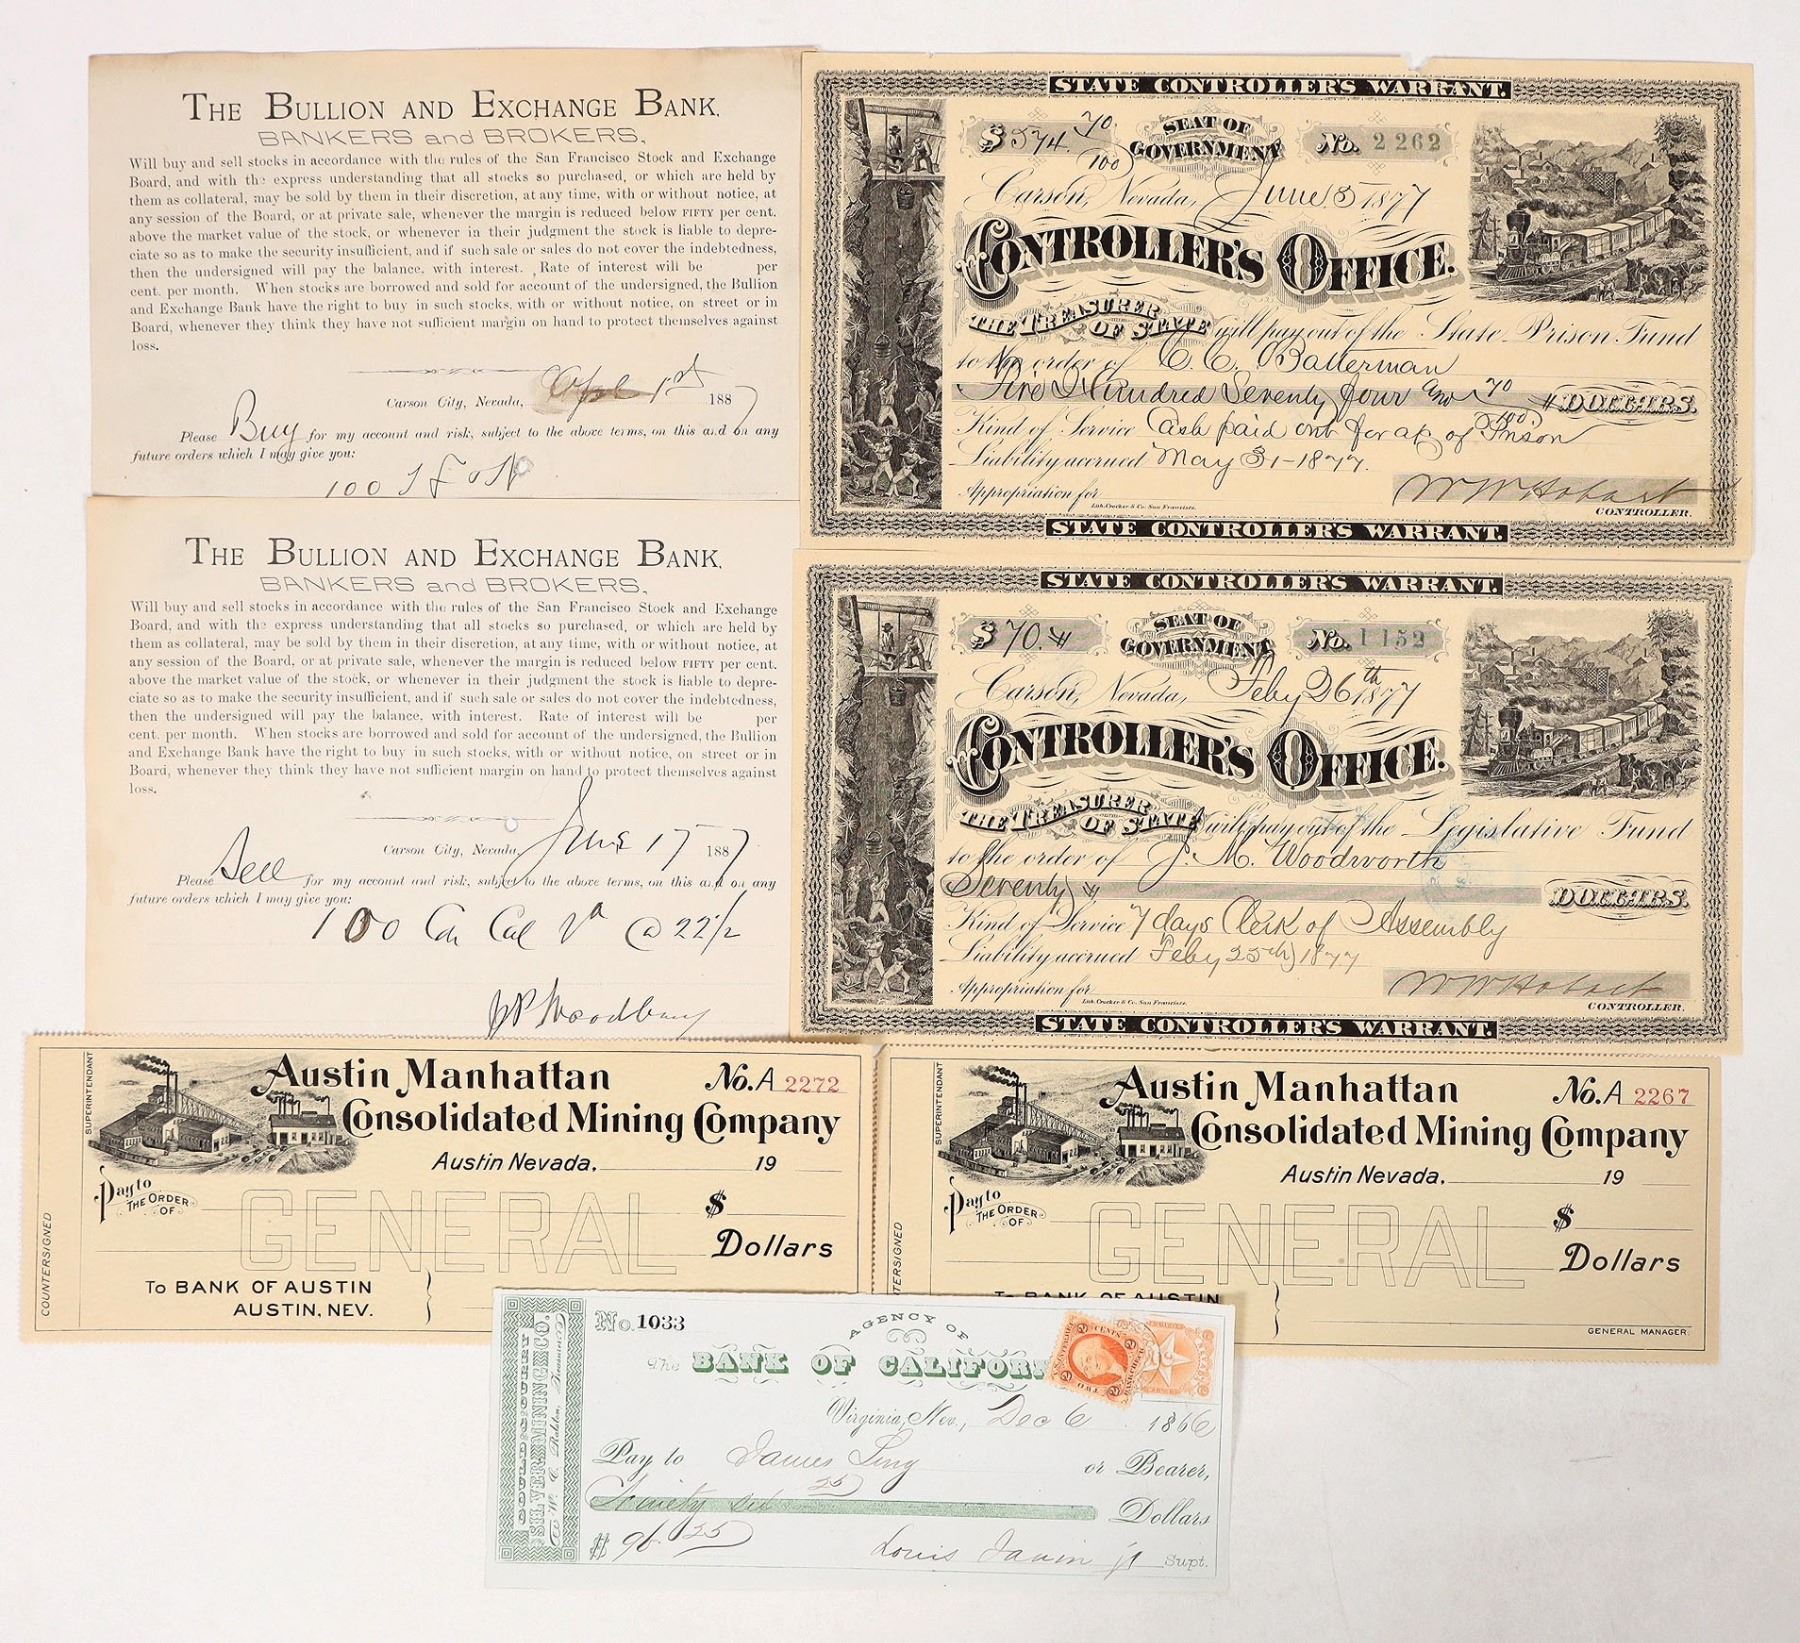 THE BULLION AND EXCHANGE BANK,
BANKERS and BROKERS,
Will buy and sell stocks in accordance with the rules of the San Francisco Stock and Exchange
Board, and with the express understanding that all stocks so purchased, or which are held by
them as collateral, may be sold by them in their discretion, at any time, with or without notice, at
any session of the Board, or at private sale, whenever the margin is reduced below FIFTY per cent.
above the market value of the stock, or whenever in their judgment the stock is liable to depre-
ciate so as to make the security insufficient, and if such sale or sales do not cover the indebtedness,
then the undersigned will pay the balance, with interest. Rate of interest will be per
cent. per month. When stocks are borrowed and sold for account of the undersigned, the Bullion
and Exchange Bank have the right to buy in such stocks, with or without notice, on street or in
Board, whenever they think they have not sufficient margin on hand to protect themselves against
loss.
Carson City, Nevada, 1st 1887
Please Buy for my account and risk, subject to the above terms, on this and on any
future orders which I may give you:
100
THE BULLION AND EXCHANGE BANK,
BANKERS and BROKERS,
Will buy and sell stocks in accordance with the rules of the San Francisco Stock and Exchange
Board, and with the express understanding that all stocks so purchased, or which are held by
them as collateral, may be sold by them in their discretion, at any time, with or without notice, at
any session of the Board, or at private sale, whenever the margin is reduced below FIFTY per cent.
above the market value of the stock, or whenever in their judgment the stock is liable to depre-
ciate so as to make the security insufficient, and if such sale or sales do not cover the indebtedness,
then the undersigned will pay the balance, with interest. Rate of interest will be per
cent. per month. When stocks are borrowed and sold for account of the undersigned, the Bullion
and Exchange Bank have the right to buy in such stocks, with or without notice, on street or in
Board, whenever they think they have not sufficient margin on hand to protect themselves against
loss.
Carson City, Nevada, June 17 1887
Please Sell for my account and risk, subject to the above terms, on this and on any
future orders which I may give you:
100 Con Cal Va @ 22 1/2
Woodbury
STATE CONTROLLER'S WARRANT.
$574 70/100 SEAT OF GOVERNMENT No. 2262
Carson, Nevada, June 5 1877
CONTROLLER'S OFFICE.
THE TREASURER OF STATE will pay out of the State Prison Fund
to the order of C. C. Batterman
Five Hundred Seventy four and 70/100 DOLLARS.
Kind of Service Cash paid out for a/c of Prison
Liability accrued May 31-1877.
Appropriation for
W W Hobart
Lith. Crocker & Co. San Francisco.
CONTROLLER.
STATE CONTROLLER'S WARRANT.
STATE CONTROLLER'S WARRANT.
$70. SEAT OF GOVERNMENT No. 1152
Carson, Nevada, Feby 26th 1877
CONTROLLER'S OFFICE.
THE TREASURER OF STATE will pay out of the Legislative Fund
to the order of J. M. Woodworth
Seventy DOLLARS.
Kind of Service 7 days Clerk of Assembly
Liability accrued Feby 25th 1877
Appropriation for
W W Hobart
Lith. Crocker & Co. San Francisco.
CONTROLLER.
STATE CONTROLLER'S WARRANT.
SUPERINTENDANT
COUNTERSIGNED
Austin Manhattan No. A 2272
Consolidated Mining Company
Austin Nevada, 19
Pay to THE ORDER OF $
GENERAL
Dollars
To BANK OF AUSTIN
AUSTIN, NEV.
SUPERINTENDANT
TERSIGNED
Austin Manhattan No. A 2267
Consolidated Mining Company
Austin Nevada, 19
Pay to THE ORDER OF $
GENERAL
Dollars
To BANK OF AUSTIN
GENERAL MANAGER.
GOULD & CURRY
SILVER MINING CO.
W. C. Ralston, Treasurer
No. 1033 AGENCY OF
The BANK OF CALIFORN
Virginia, Nev., Dec 6 1866
Pay to James or Bearer,
Ninety six 25 Dollars
$ 96.25 Louis Janin jr Supt.